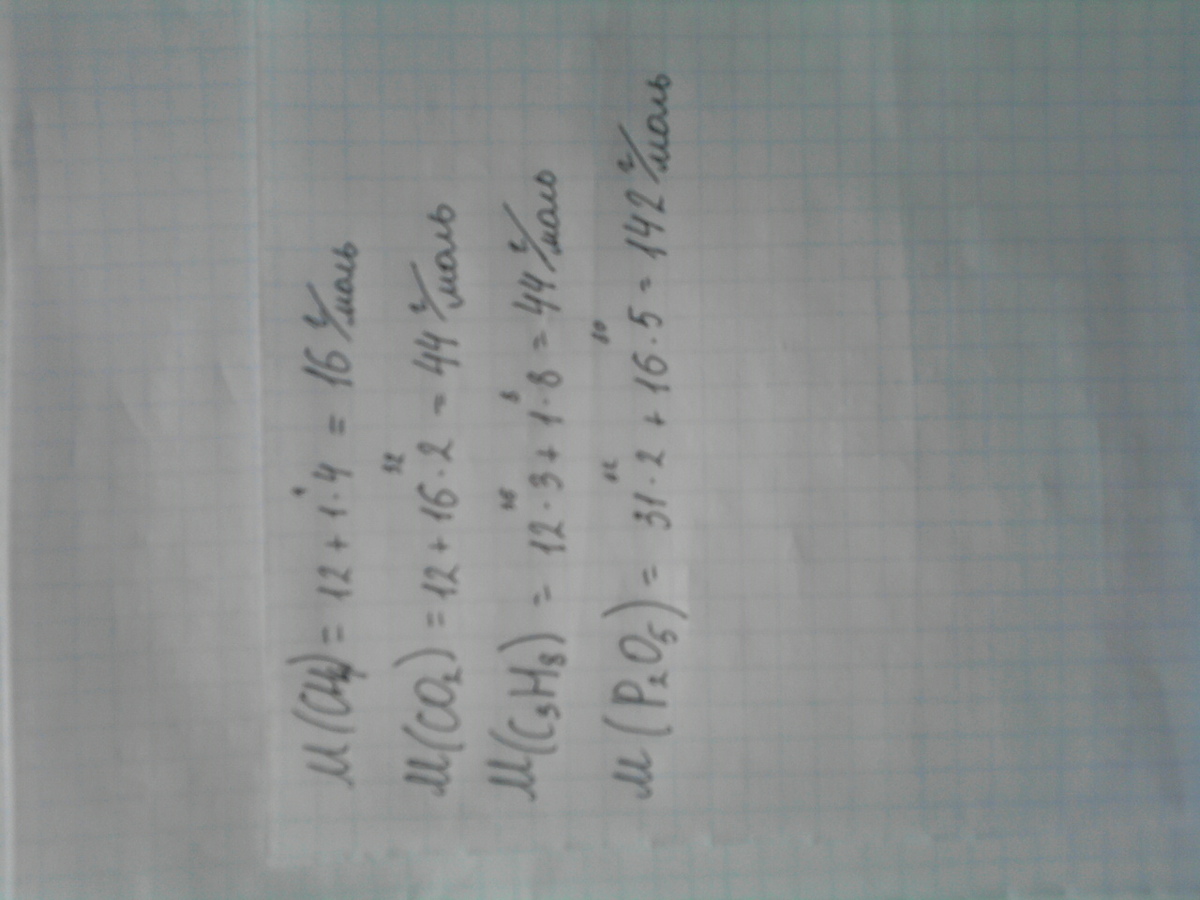 M(CH₄) = 12 + 1 · 4 = 16 г/моль
32
M(CO₂) = 12 + 16 · 2 = 44 г/моль
8
M(C₃H₈) = 12 · 3 + 1 · 8 = 44 г/моль
M(P₂O₅) = 31 · 2 + 16 · 5 = 142 г/моль